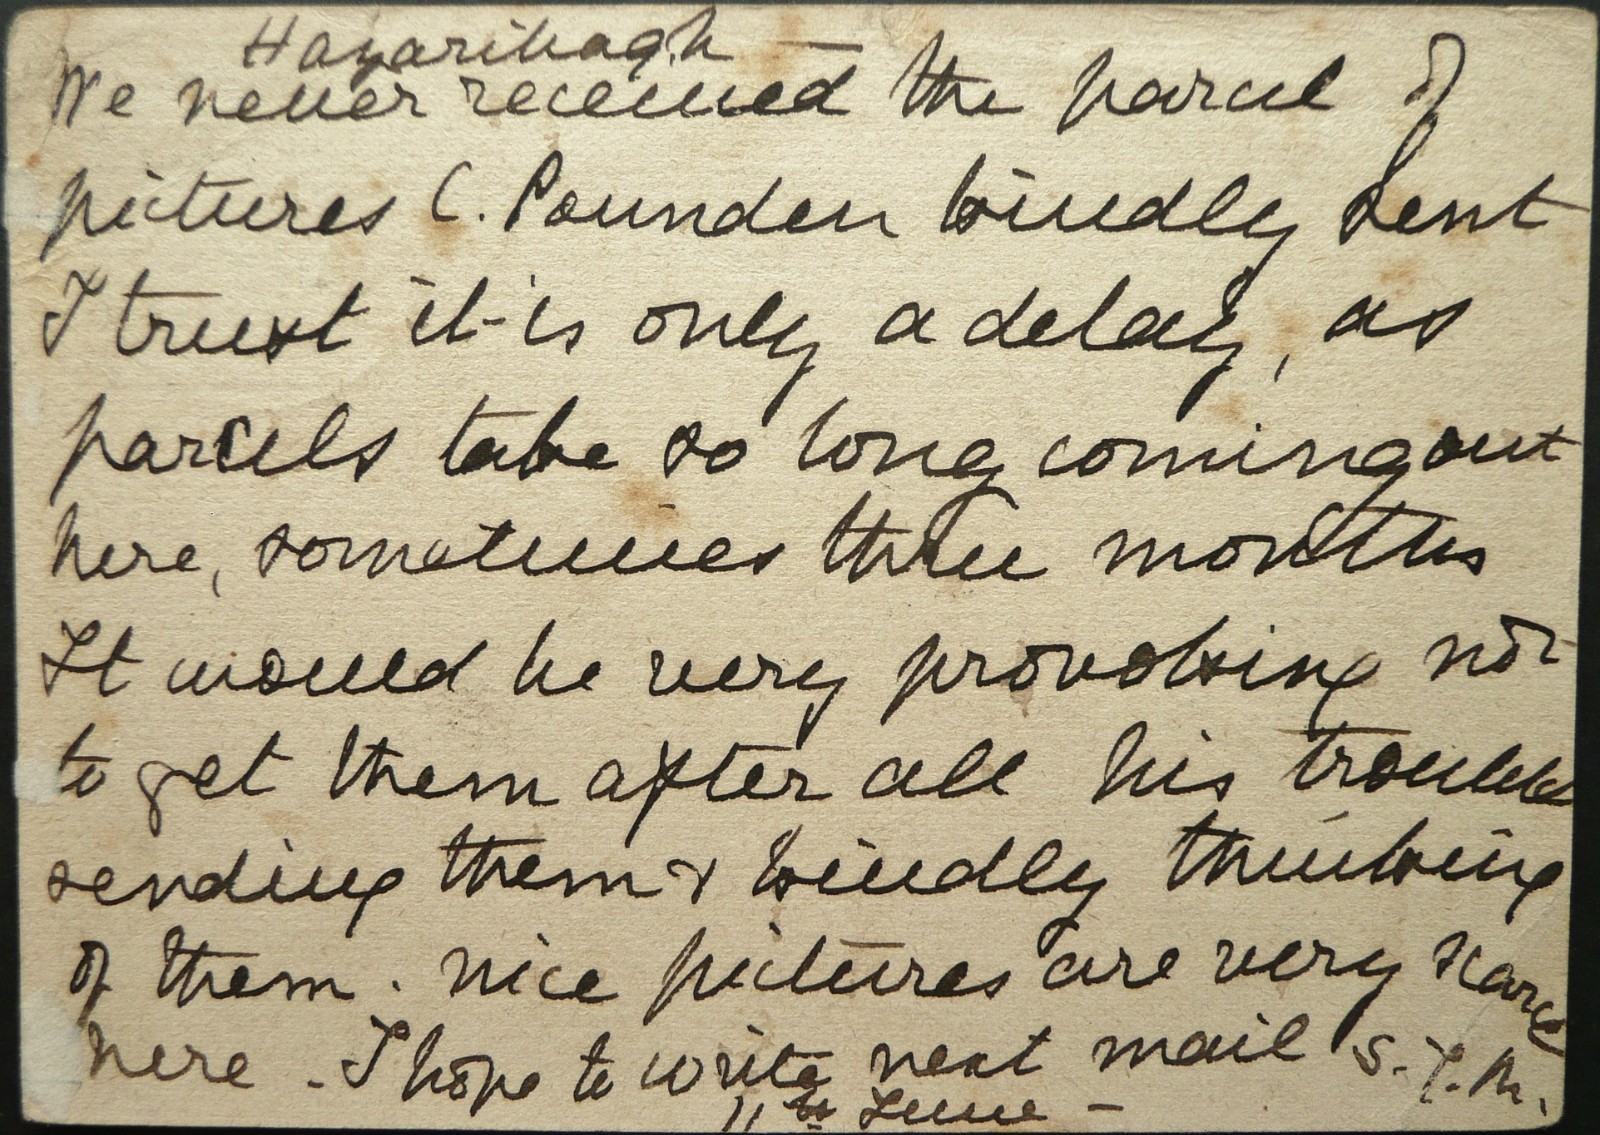 Hazaribagh —
We never received the parcel of
pictures C. Pounden kindly sent
I trust it is only a delay, as
parcels take so long coming out
here, sometimes three months
It would be very provoking not
to get them after all his trouble
sending them & kindly thinking
of them. nice pictures are very scarce
here. I hope to write next mail S. T. M.
11th June —